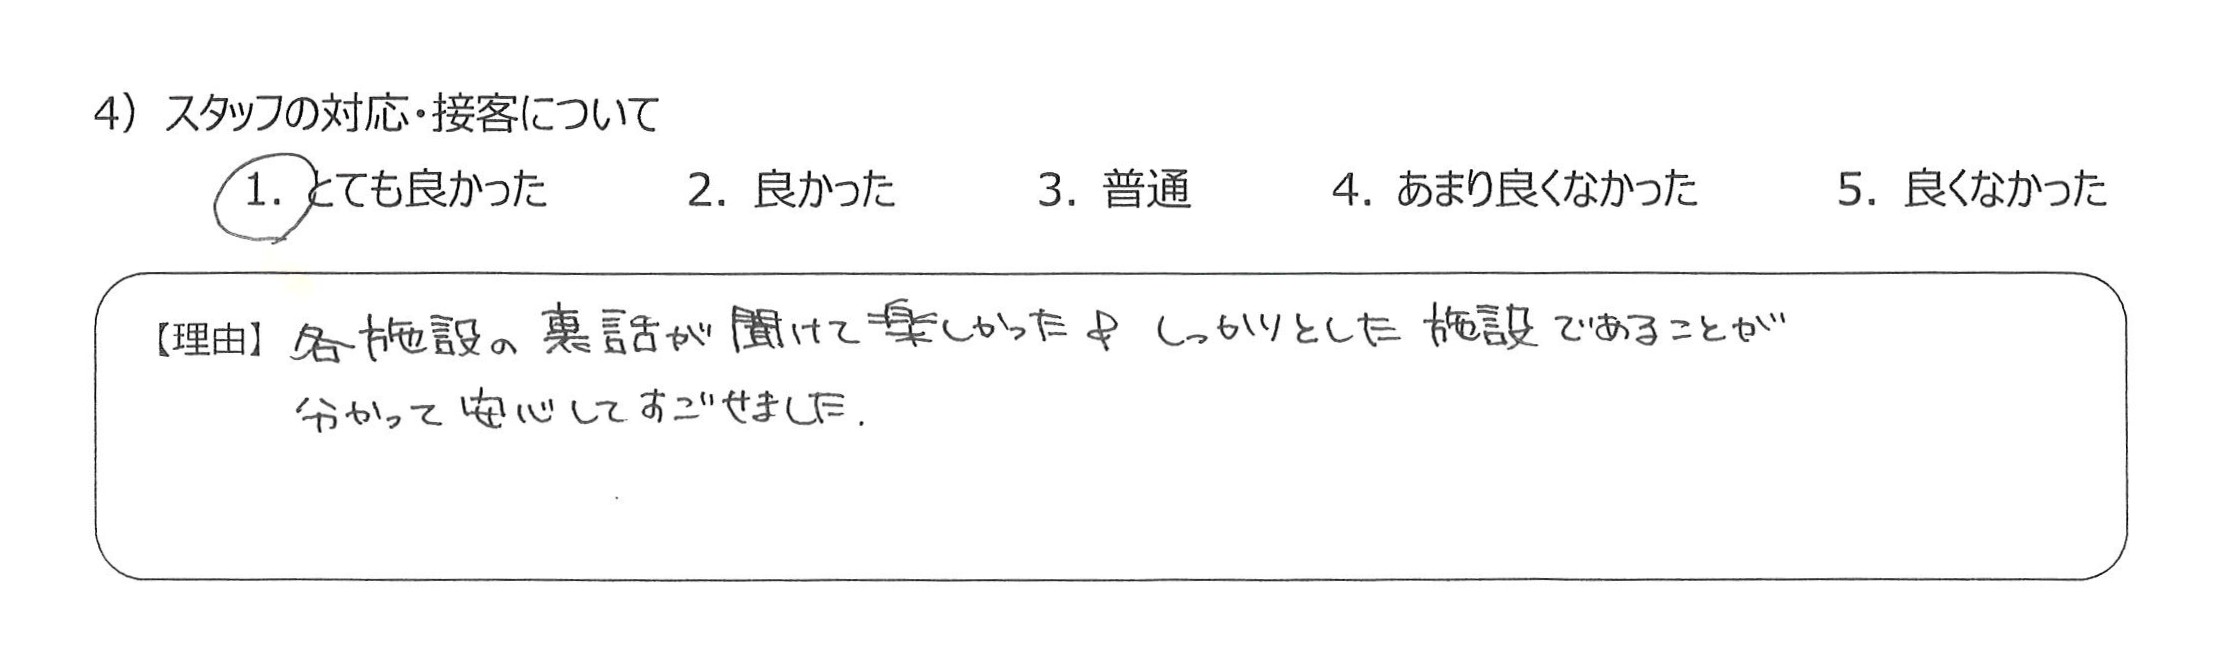 4) スタッフの対応・接客について
1. とても良かった 2. 良かった 3. 普通 4. あまり良くなかった 5. 良くなかった
【理由】各施設の裏話が聞けて楽しかった & しっかりとした施設であることが
分かって安心してすごせました.